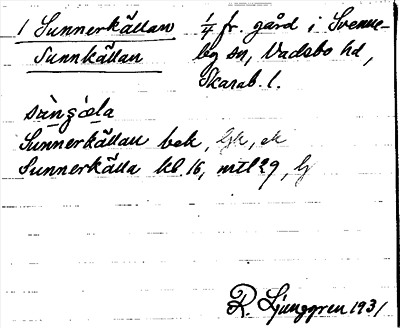 1 Sunnerkällan 1/4 fr. gård i Svenne-
Sunnkällan by sn, Vadsbo hd,
Skarab. l.
Sunnerkällan bek, ljk, ek
Sunnerkälla kb. 16, mtl 29, lj
R. Ljunggren 1931